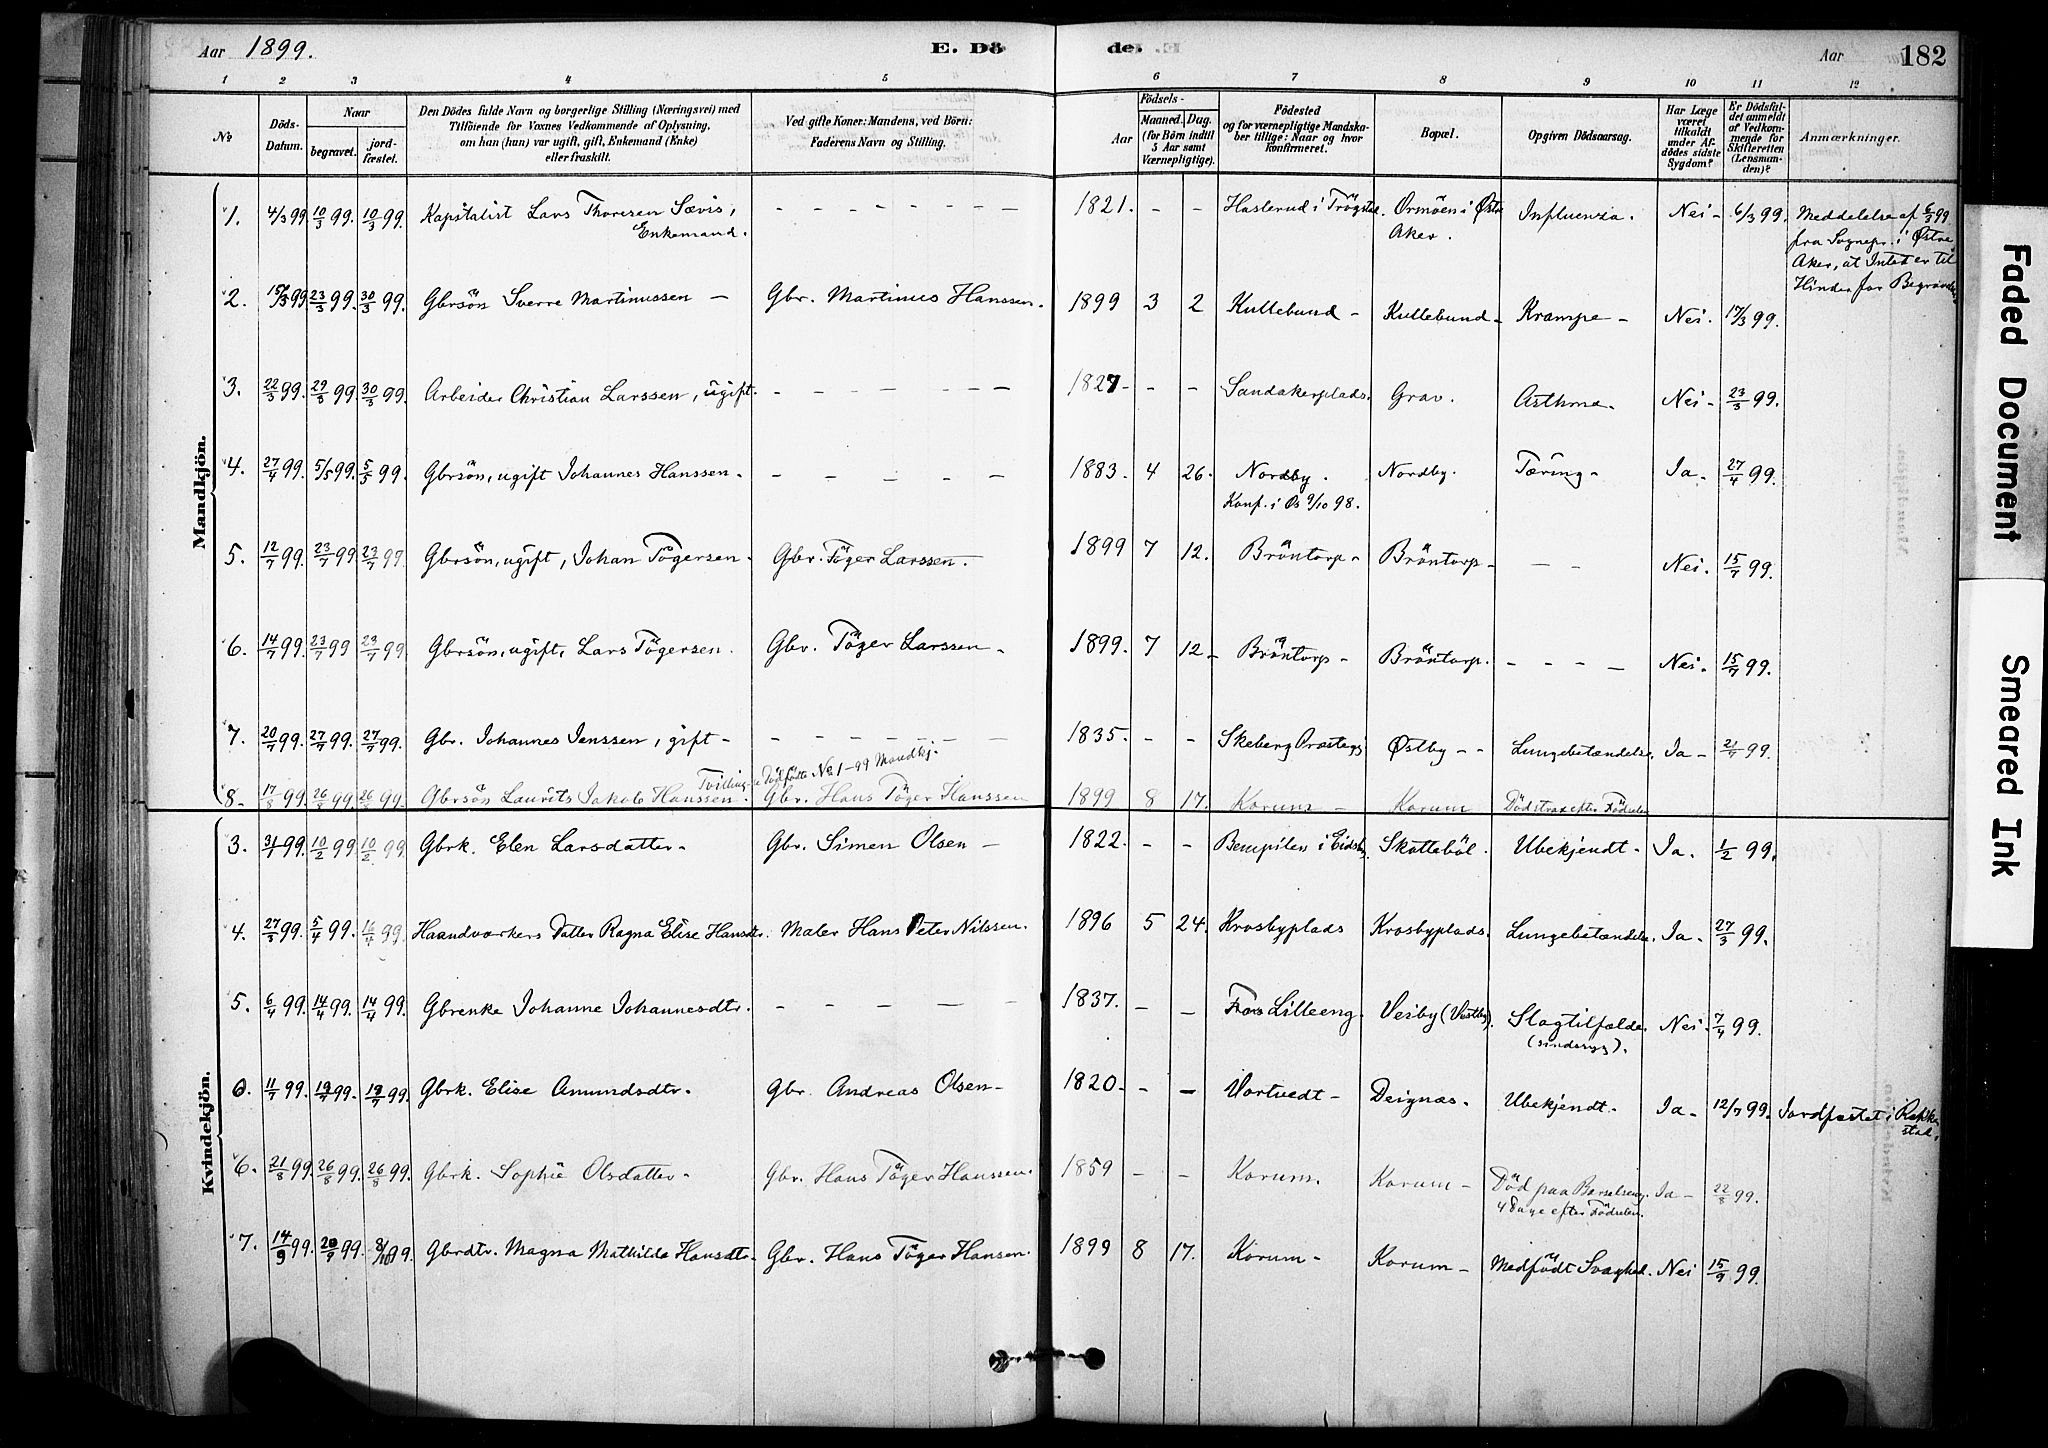 Aar 1899.
E. Döde. E
Aar
182
1 2 3 4 5 6 7 8 9 10 11 12
No
Döds-Datum.
Naar
begravet.
jordfæstet.
Den Dödes fulde Navn og borgerlige Stilling (Næringsvei) med Tilföiende for Voxnes Vedkommende af Oplysning, om han (hun) var ugift, gift, Enkemand (Enke) eller fraskilt.
Ved gifte Koner: Mandens, ved Börn: Faderens Navn og Stilling.
Födsels-
Aar
Maaned. Dag.
(for Börn indtil 5 Aar samt Værnepligtige).
Födested og for værnepligtige Mandskaber tillige: Naar og hvor konfirmeret.
Bopæl.
Opgiven Dödsaarsag.
Har Læge været tilkaldt under Afdödes sidste Sygdom?
Er Dödsfaldet anmeldt af Vedkommende for Skifteretten (Lensmanden)?
Anmærkninger.
Mandkjön.
1. 4/3 99 10/3 99. 10/3 99. Kapitalist Lars Thoresen Sævis, Enkemand. – – – 1821. – – Haslerud i Trögstad. Ormöen i Østre Aker. Influenza. Nei – 6/3 99. Meddelelse af 6/3 99 fra Sognepr. i Østre Aker, at Intet er til Hinder for Begravelse
2. 15/3 99 23/3 99. 30/3 99. Gbrsön Sverre Martinussen – Gbr. Martinus Hanssen. 1899 3 2 Kullebund – Kullebund – Krampe – Nei. 17/3 99.
3. 22/3 99. 29/3 99. 30/3 99. Arbeider Christian Larssen, ugift. – – – 1827 – – – Sandakerplads. Grav. Asthma. Nei – 23/3 99.
4. 27/4 99. 5/5 99. 5/5 99. Gbrsön, ugift Johannes Hanssen. – – – 1883. 4 26. Nordby. Konf. i Os 9/10 98. Nordby. Tæring – Ja. 27/4 99.
5. 12/7 99. 23/7 99. 23/7 99. Gbrsön, ugift, Johan Tögersen. Gbr. Töger Larssen. 1899 7 12. Bröntorp – Bröntorp – – – Nei. 15/7 99.
6. 14/7 99. 23/7 99 23/7 99. Gbrsön, ugift, Lars Tögersen. Gbr. Töger Larssen – 1899. 7 12 – Bröntorp – Bröntorp. – – – – Nei. 15/7 99.
7. 20/7 99. 27/7 99. 27/7 99. Gbr. Johannes Jenssen, gift – – – – 1835. – – Skeberg Præstegj. Østby – – Lungebetændelse. Ja – 21/7 99.
Tvilling Dödfödte No 1–99 Mandkj.
8. 17/8 99. 26/8 99. 26/8 99. Gbrsön Laurits Jakob Hanssen. Gbr. Hans Töger Hanssen 1899 8 17. Korum – Korum Död strax efter Födselen
Kvindekjön.
3. 31/1 99. 10/2 99. 10/2 99. Gbrk. Elen Larsdatter – Gbr. Simen Olsen – 1822. – – Bempilen i Eidsbg. Skotteböl. Ubekjendt – Ja. 1/2 99.
4. 27/3 99. 5/4 99. 16/4 99. Haandværkers Datter Ragna Elise Hansdtr. Maler Hans Peter Nilssen. 1896 5 24. Krosbyplads Krosbyplads. Lungebetændelse. Ja. 27/3 99.
5. 6/4 99. 14/4 99. 14/4 99. Gbrenke Johanne Johannesdtr. – – – 1837. – – Lilleeng. Vesby (Vestby). Slagtilfælde (sindssyg). Nei. 7/4 99.
6. 11/7 99. 19/7 99. 19/7 99. Gbrk. Elise Amundsdtr. Gbr. Andreas Olsen – 1820 – – – Vortvedt – Deignæs. Ubekjendt. Ja – 12/7 99. Jordfæstet i Rakkestad.
6. 21/8 99. 26/8 99. 26/8 99. Gbrk. Sophie Olsdatter – Gbr. Hans Töger Hanssen. 1859 – – Korum. Korum – Död paa Barselseng. 4 Dage efter Födselen. Ja – 22/8 99.
7. 14/9 99. 20/9 99. 8/10 99. Gbrdtr. Magna Mathilde Hansdtr. Gbr. Hans Töger Hansen. 1899 8 17. Korum – Korum – Medfödt Svaghed. Nei 15/9 99.
Faded Document
Smeared Ink